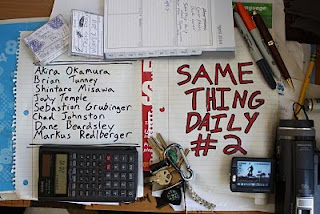 Akira Okamura
Brian Tunney
Shintaro Misawa
Jody Temple
Sebastian Grubinger
Chad Johnston
Dane Beardsley
Markus Redlberger
SAME
THING
DAILY
#2